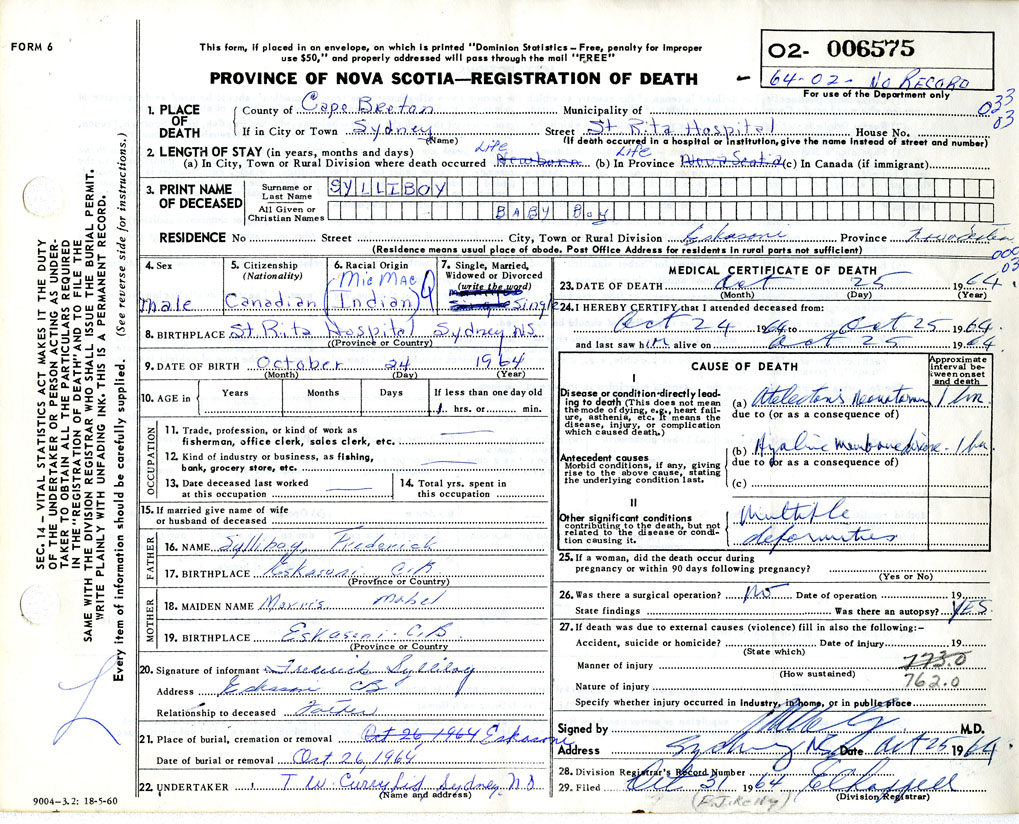 FORM 6
This form, if placed in an envelope, on which is printed "Dominion Statistics – Free, penalty for improper
use $50," and properly addressed will pass through the mail "FREE"
PROVINCE OF NOVA SCOTIA—REGISTRATION OF DEATH
02- 006575
- 64-02- No RECORD
For use of the Department only
033
03
SEC. 14 – VITAL STATISTICS ACT MAKES IT THE DUTY
OF THE UNDERTAKER OR PERSON ACTING AS UNDER-
TAKER TO OBTAIN ALL THE PARTICULARS REQUIRED
IN THE "REGISTRATION OF DEATH" AND TO FILE THE
SAME WITH THE DIVISION REGISTRAR WHO SHALL ISSUE THE BURIAL PERMIT.
WRITE PLAINLY WITH UNFADING INK. THIS IS A PERMANENT RECORD.
Every item of information should be carefully supplied. (See reverse side for instructions.)
1. PLACE OF DEATH
County of Cape Breton Municipality of
If in City or Town Sydney Street St Rita Hospital House No.
(Name) (If death occurred in a hospital or institution, give the name instead of street and number)
2. LENGTH OF STAY (in years, months and days) Life Life
(a) In City, Town or Rural Division where death occurred Newborn (b) In Province Nova Scotia (c) In Canada (if immigrant)
3. PRINT NAME OF DECEASED
Surname or Last Name SYLLIBOY
All Given or Christian Names BABY Boy
RESIDENCE No Street City, Town or Rural Division Eskasoni Province Nova Scotia
(Residence means usual place of abode. Post Office Address for residents in rural parts not sufficient)
000
03
4. Sex
male
5. Citizenship (Nationality)
Canadian
6. Racial Origin
(Mic Mac
Indian)
7. Single, Married, Widowed or Divorced (write the word)
Single
8. BIRTHPLACE St. Rita Hospital Sydney N.S.
(Province or Country)
9. DATE OF BIRTH October 24 1964
(Month) (Day) (Year)
10. AGE in Years Months Days If less than one day old
1 hrs. or min.
OCCUPATION
11. Trade, profession, or kind of work as
fisherman, office clerk, sales clerk, etc.
12. Kind of industry or business, as fishing,
bank, grocery store, etc.
13. Date deceased last worked
at this occupation
14. Total yrs. spent in
this occupation
15. If married give name of wife
or husband of deceased
FATHER
16. NAME Sylliboy, Frederick
17. BIRTHPLACE Eskasoni C.B
(Province or Country)
MOTHER
18. MAIDEN NAME Morris Mabel
19. BIRTHPLACE Eskasoni C.B.
(Province or Country
20. Signature of informant Frederick Sylliboy
Address Eskasoni CB
Relationship to deceased Father
21. Place of burial, cremation or removal Oct 26, 1964 Eskasoni
Date of burial or removal Oct 26, 1964
22. UNDERTAKER T. W. Curry Ltd Sydney, N.S
(Name and address)
9004–3.2: 18-5-60
MEDICAL CERTIFICATE OF DEATH
23. DATE OF DEATH Oct 25 1964
(Month) (Day) (Year)
24. I HEREBY CERTIFY that I attended deceased from:
Oct 24 1964 to Oct 25 1964
and last saw him alive on Oct 25 1964
CAUSE OF DEATH
Approximate interval between onset and death
I
Disease or condition directly lead-
ing to death (This does not mean
the mode of dying, e.g., heart fail-
ure, asthenia, etc. It means the
disease, injury, or complication
which caused death.)
(a) Atelectasis Neonatorum 1 hr
due to (or as a consequence of)
Antecedent causes
Morbid conditions, if any, giving
rise to the above cause, stating
the underlying condition last.
(b) Hyaline membrane disease 1 hr
due to (or as a consequence of)
(c)
II
Other significant conditions
contributing to the death, but not
related to the disease or condi-
tion causing it.
Multiple
deformities
25. If a woman, did the death occur during
pregnancy or within 90 days following pregnancy?
(Yes or No)
26. Was there a surgical operation? No Date of operation 19
State findings Was there an autopsy? YES
27. If death was due to external causes (violence) fill in also the following:–
Accident, suicide or homicide? Date of injury 19
(State which)
773.0
Manner of injury
(How sustained)
762.0
Nature of injury
Specify whether injury occurred in industry, in home, or in public place
Signed by M.D.
Address Sydney N.S. Date Oct 25 1964
28. Division Registrar's Record Number
29. Filed Oct 31 1964 E Chappell
(F.J. Kelly) (Division Registrar)